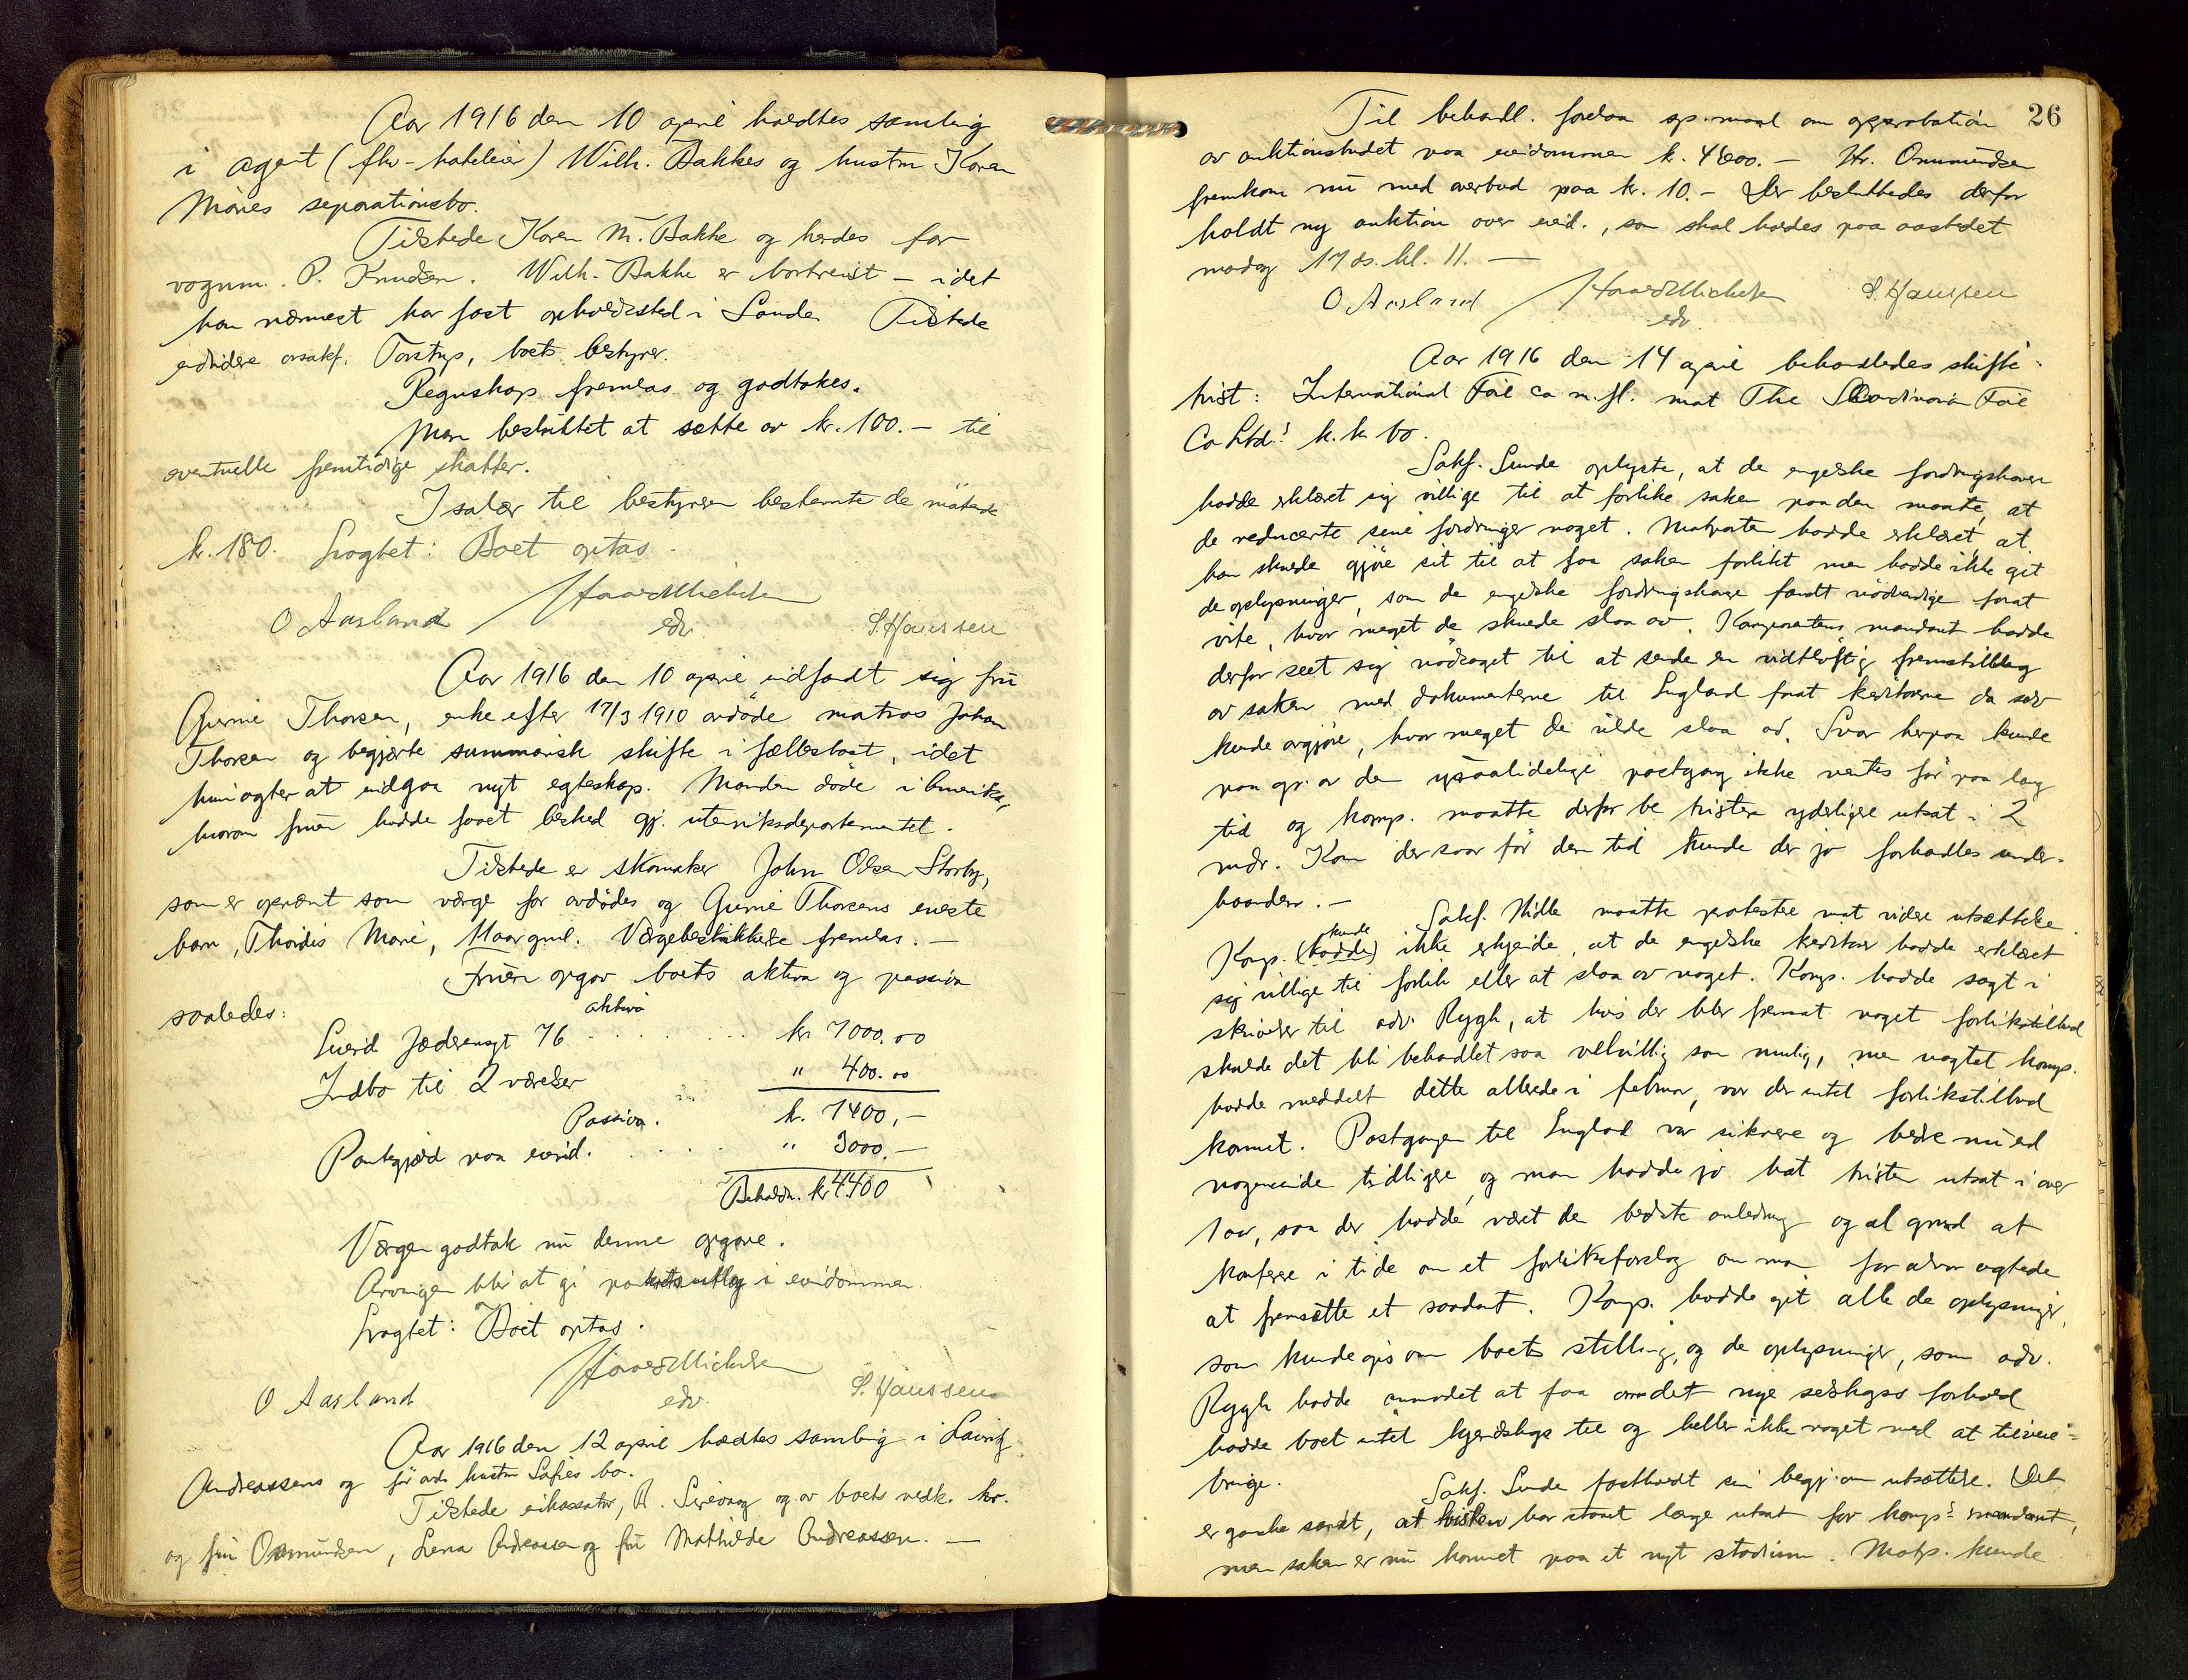 Aar 1916 den 10 april holdtes samling
i agent (fhv. hoteleier) Wilh. Bakkes og hustru Karen
Maries separationsbo.
Tilstede Karen M. Bakke og hendes far
vognm. P. Knudsen. Wilh. Bakke er bortreist - idet
han nærmest har fast opholdssted i Sande. Tilstede
endvidere orsakf. Torstrup, boets bestyrer.
Regnskap fremlas og godtokes.
Man besluttet at sætte av kr. 100.- til
eventuelle fremtidige skatter.
I salær til bestyreren bestemte de møtende
kr. 180. Fragtet: Boet optas.
O Aasland Haard Michelsen S. Hanssen
edv.
Aar 1916 den 10 april indfandt sig fru
Gurine Thorsen, enke efter 17/3 1910 avdøde matros Johan
Thorsen og begjærte summarisk skifte i fællesboet, idet
hun agter at indgaa nyt egteskap. Manden døde i Amerika,
hvorom fruen hadde faaet besked gj. utenriksdepartementet.
Tilstede er skomaker John Olsen Storby,
som er opnævnt som værge for avdødes og Gurine Thorsens eneste
barn, Thordis Marie, 11 aar gml. Værgebeskikkelse fremlas. -
Fruen opgav boets aktiva og passiva
saaledes:
aktiva
Eiend. Jæderensgt 76 . . . . . . kr. 7000.00
Indbo til 2 værelser " 400.00
Passiva. kr. 7400,-
Pantegjæld paa eiend. . . . . . " 3000,-
Beholdn. kr 4400
Værgen godtok nu denne opgave.
Arvingen blir at gi panteutlæg i eiendommen.
Fragtet: Boet optas.
O Aasland Haard Michelsen S. Hanssen
edv.
Aar 1916 den 12 april holdtes samling i Lauritz
Andreassens og før avd. hustru Sofies bo.
Tilstede inkassator, R. Sirevaag og av boets vedk. hr.
og fru Ommundsen, Lena Andreassen og fru Mathilde Andreassen. -
26
Til behandl. forelaa sp.maal om approbation
av auktionsbudet paa eiendommen k. 4800.- Hr. Ommundsen
fremkom nu med overbud paa kr. 10.- Der besluttedes derfor
holdt ny auktion over eiend., som skal holdes paa aastedet
mandag 17 ds. kl. 11. -
O Aasland Haard Michelsen S. Hanssen
edv.
Aar 1916 den 14 april behandledes skifte-
tvist: International Foil Co m. fl. mot The Scandinavian Foil
Co Ltd.s k.k. bo.
Sakf. Sunde oplyste, at de engelske fordringshavere
hadde erklæret sig villige til at forlike saken paa den maate, at
de reducerte sine fordringer noget. Motparten hadde erklæret, at
han skulde gjøre sit til at faa saken forlikt men hadde ikke git
de oplysninger, som de engelske fordringshavere fandt nødvendige forat
vite, hvor meget de skulde slaa av. Komparentens mandant hadde
derfor seet sig nødsaget til at sende en vidtløftig fremstilling
av saken med dokumenterne til England forat kreditorene da selv
kunde avgjøre, hvor meget de vilde slaa av. Svar herpaa kunde
paa gr. av den upaalidelige postgang ikke ventes før paa lang
tid og komp. maatte derfor be tvisten yderligere utsat i 2
mdr. Kom der svar før den tid kunde der jo forhandles under-
haanden. -
Sakf. Hille maatte protestere mot videre utsættelse.
kunde
Komp. (hadde) ikke erkjende, at de engelske kreditorer hadde erklæret
sig villige til forlik eller at slaa av noget. Komp. hadde sagt i
skrivelse til adv. Rygh, at hvis der blev fremsat noget forlikstilbud
skulde det bli behandlet saa velvillig som mulig, men uagtet komp.
hadde meddelt dette allerede i februar, var der intet forlikstilbud
kommet. Postgangen til England var sikrere og bedre nu end
nogensinde tidligere, og man hadde jo hat tvisten utsat i over
1 aar, saa der hadde været den bedste anledning og al grund at
konferere i tide om et forliksforslag om man for alvor agtede
at fremsætte et saadant. Komp. hadde git alle de oplysninger,
som kunde gis om boets stilling, og de oplysninger, som adv.
Rygh hadde anmodet at faa om det nye selskaps forhold
hadde boet intet kjendskap til og heller ikke noget med at tilveie-
bringe.
Sakf. Sunde fastholdt sin begj. om utsættelse. Det
er ganske sandt, at tvisten har staaet længe utsat for komp.s mandant,
men saken er nu kommet paa et nyt stadium. Motp. kunde